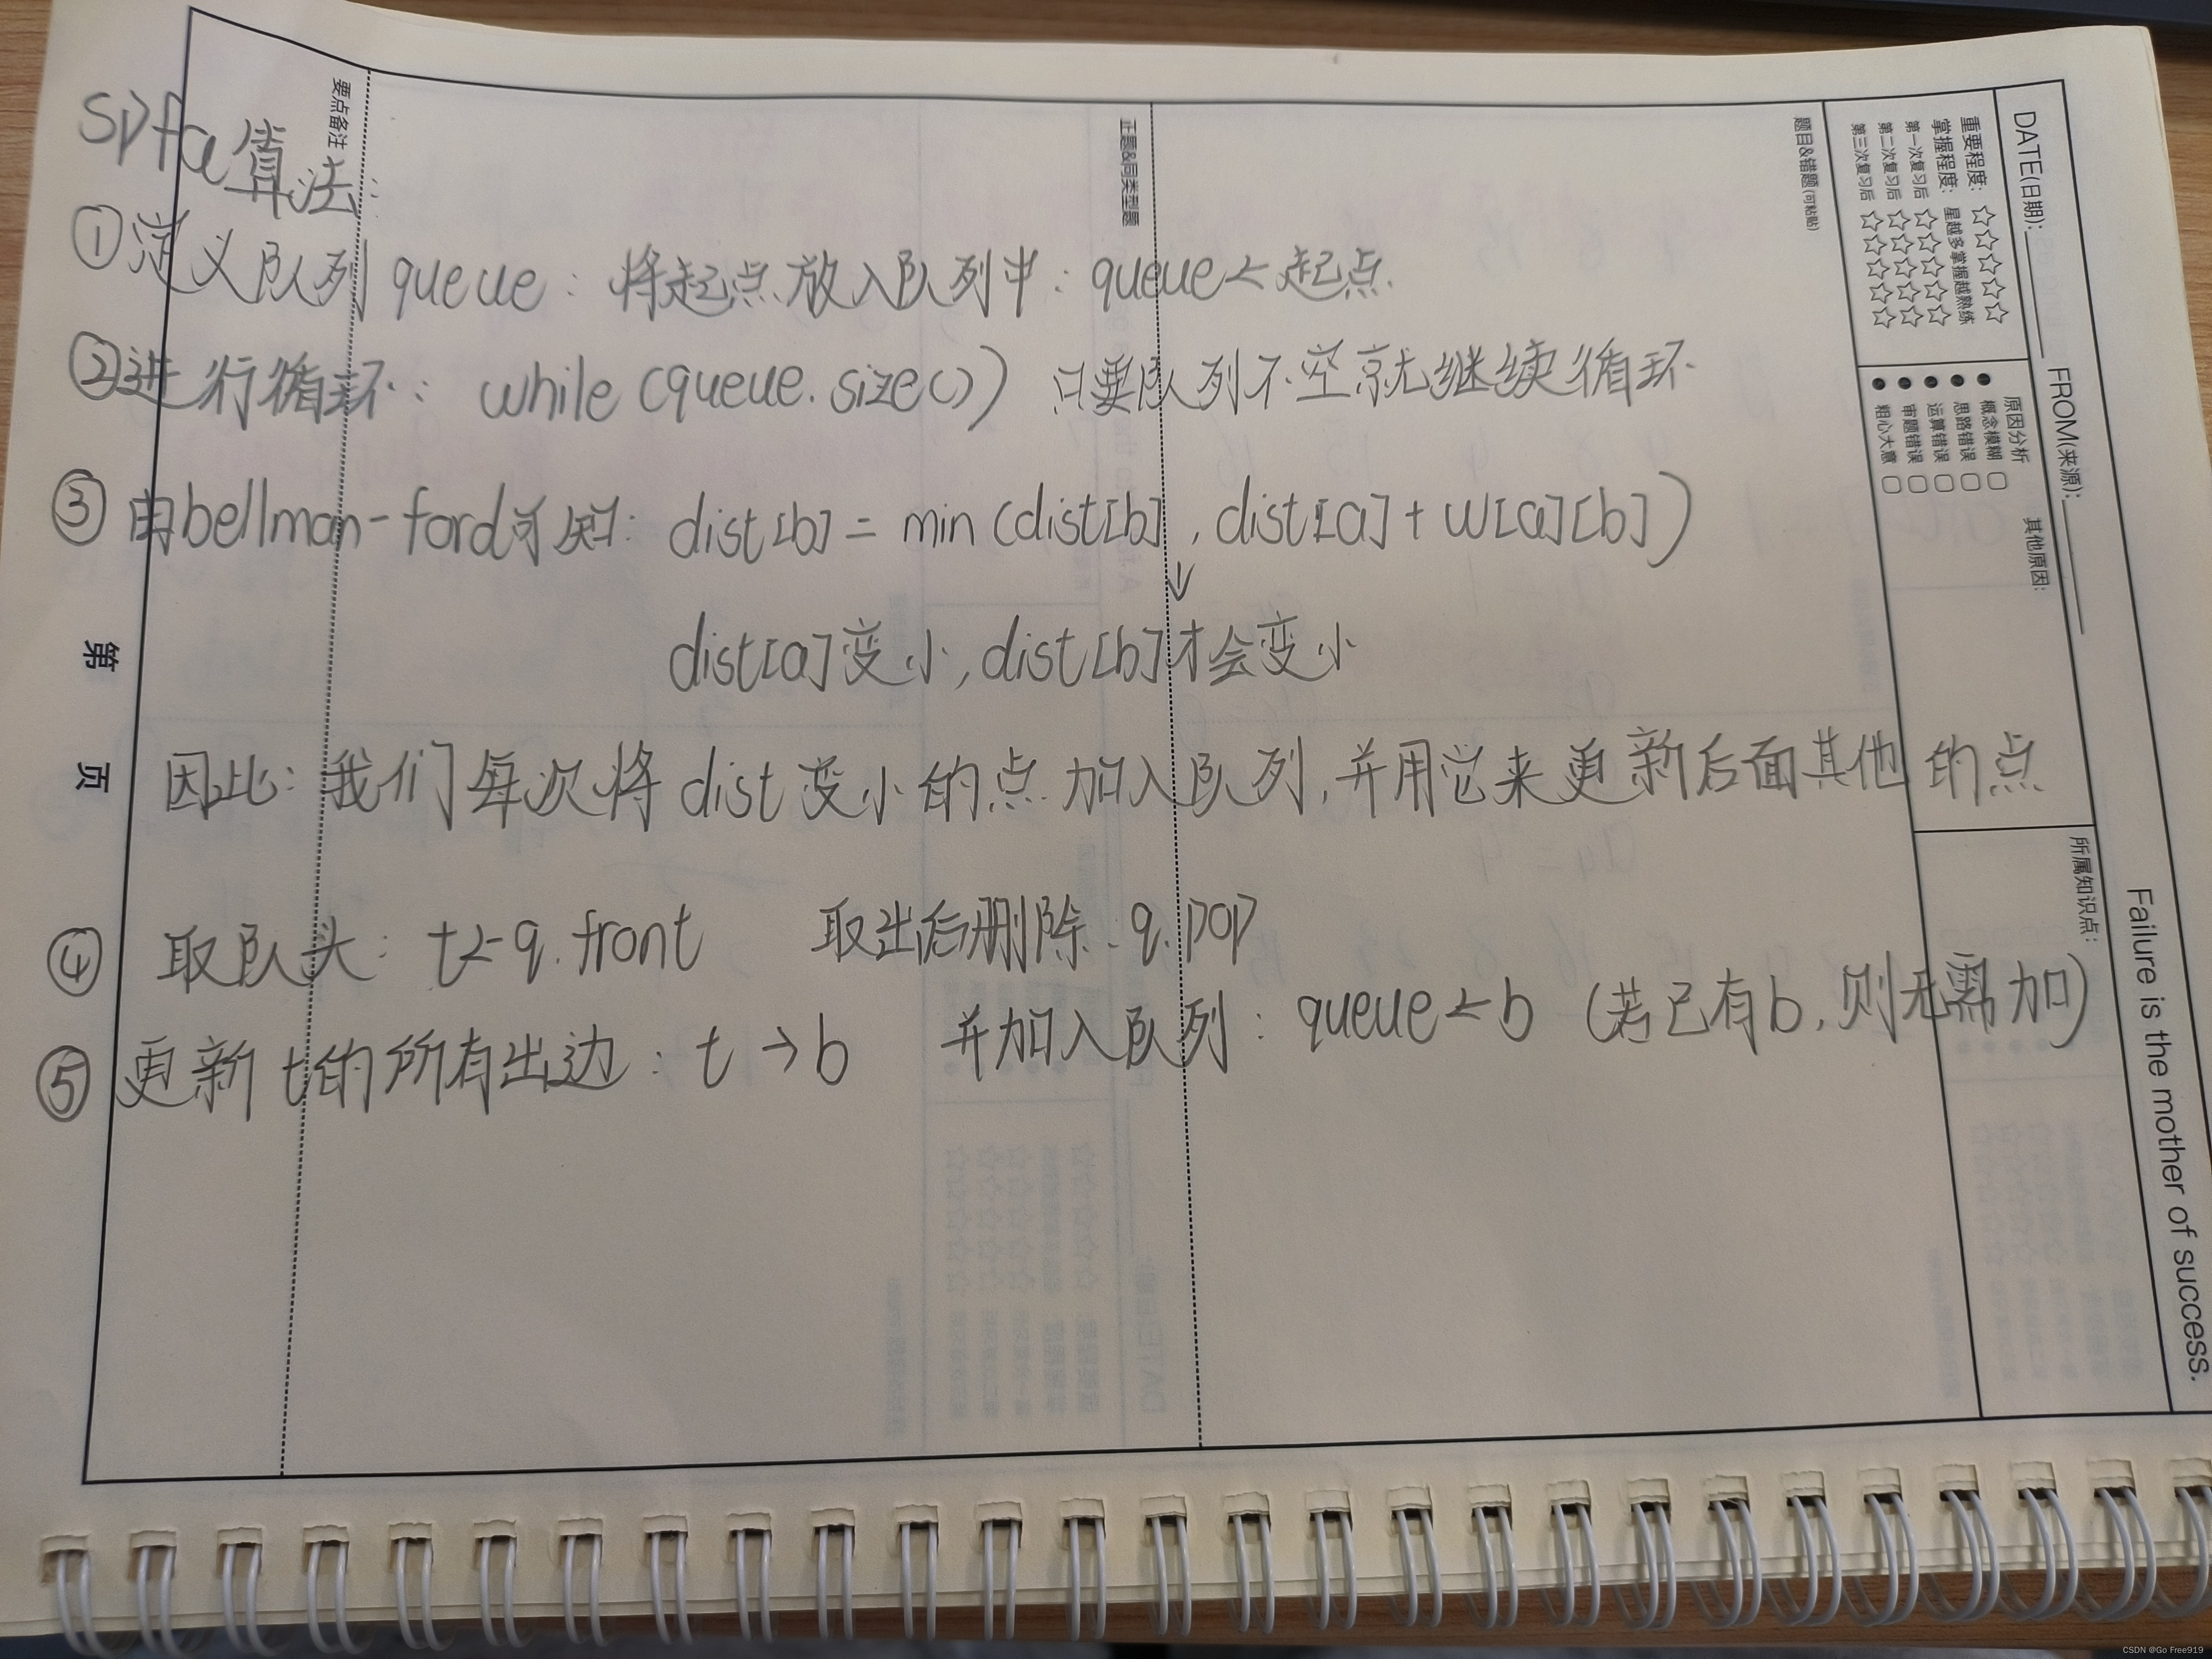 spfa算法:
①定义队列queue:将起点放入队列中:queue←起点.
②进行循环:while(queue.size())只要队列不空就继续循环
③由bellman-ford可知:dist[b]=min(dist[b],dist[a]+w[a][b])
↓
dist[a]变小,dist[b]才会变小
因此:我们每次将dist变小的点加入队列,并用它来更新后面其他的点
④取队头:t←q.front 取出后删除:q.pop
⑤更新t的所有出边:t→b 并加入队列:queue←b(若已有b,则无需加)
DATE(日期):
FROM(来源):
Failure is the mother of success.
重要程度:☆☆☆☆☆
掌握程度:星越多掌握越熟练
第一次复习后 ☆☆☆☆☆
第二次复习后 ☆☆☆☆☆
第三次复习后 ☆☆☆☆☆
原因分析
●概念模糊
●思路错误
●运算错误
●审题错误
●粗心大意
其他原因:
所属知识点:
题目&错题(可粘贴)
正题&同类型题
要点备注
第 页
CSDN @Go Free919